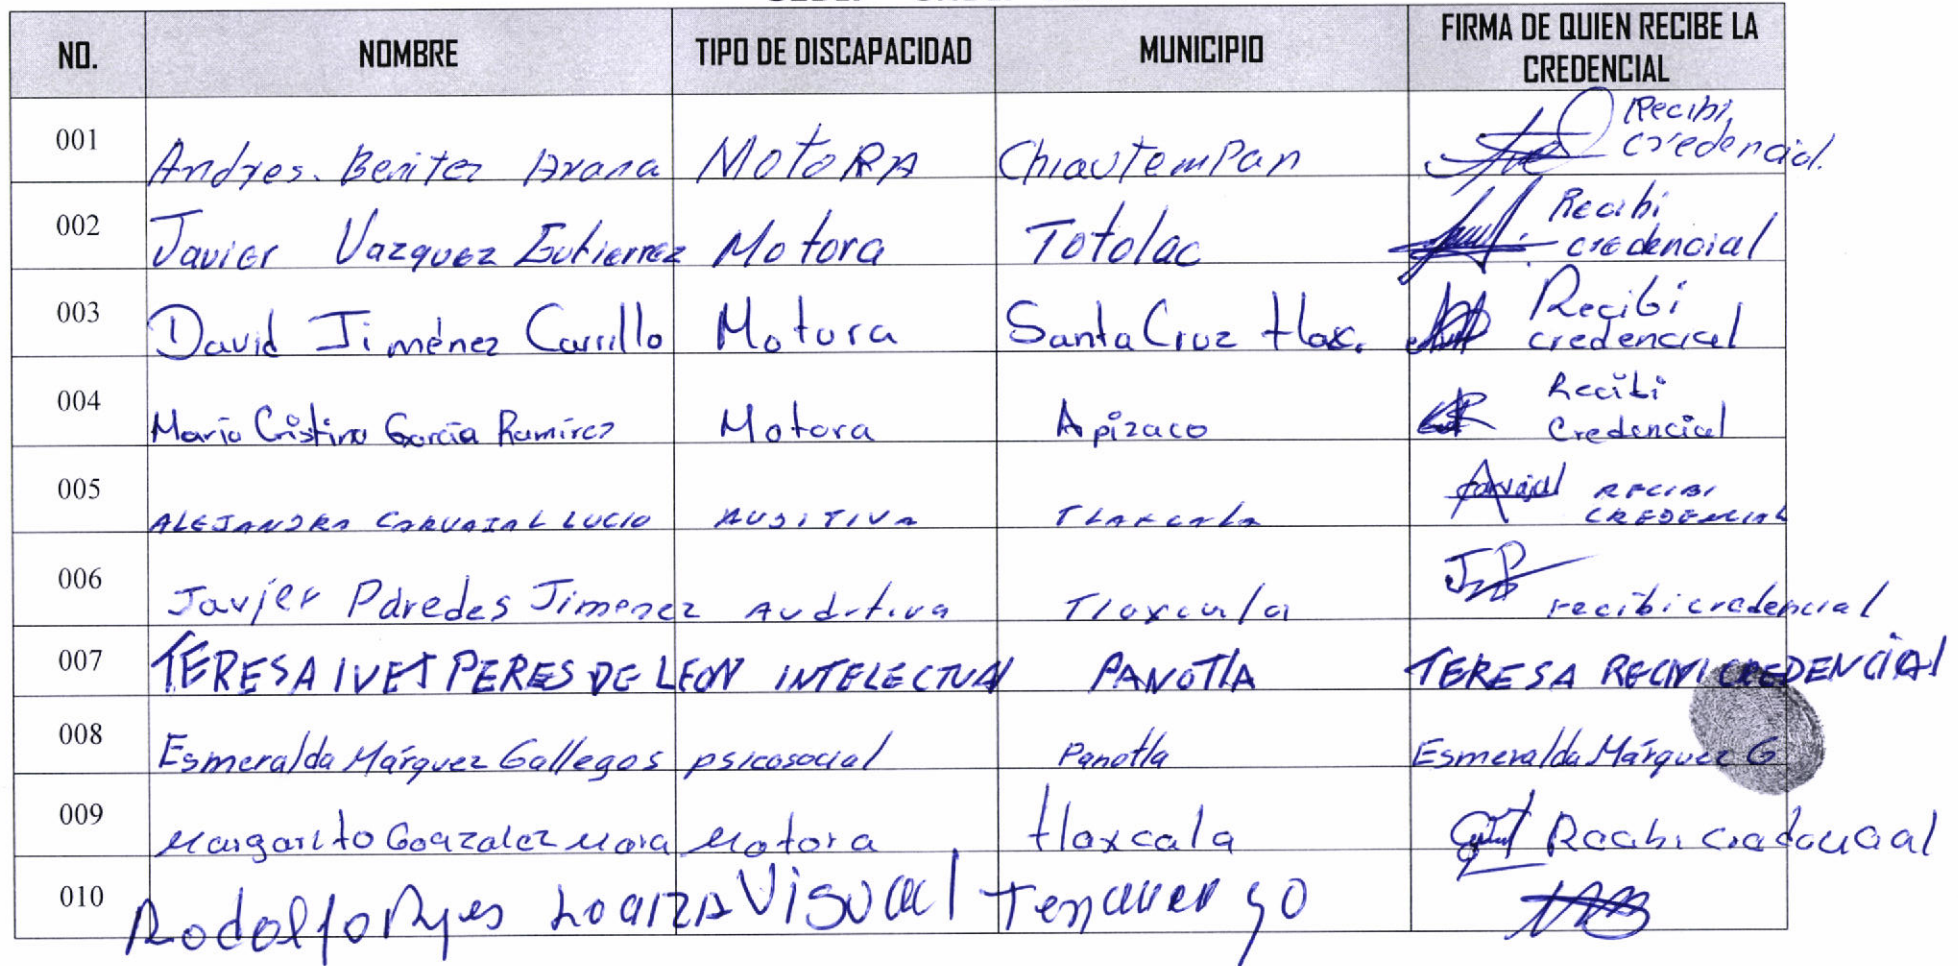 NO. NOMBRE TIPO DE DISCAPACIDAD MUNICIPIO FIRMA DE QUIEN RECIBE LA CREDENCIAL
001 Andres. Benitez Arana MotoRA Chiautempan Recibi credencial.
002 Javier Vazquez Gutierrez Motora Totolac Recibi credencial
003 David Jiménez Carrillo Motora Santa Cruz tlax. Recibí credencial
004 Maria Cristina García Ramírez Motora Apizaco Recibi Credencial
005 ALEJANDRA CARVAJAL LUCIO AUDITIVA TLAXCALA Carvajal RECIBI CREDENCIAL
006 Javier Paredes Jimenez Auditiva Tlaxcala recibi credencial
007 TERESA IVET PERES DE LEON INTELECTUAL PANOTlA TERESA RECIVI CREDENCIAL
008 Esmeralda Márquez Gallegos psicosocial Panotla Esmeralda Márquez G
009 Margarito Gonzalez Mora Motora tlaxcala Recibi credencial
010 Rodolfo Loaiza Visual